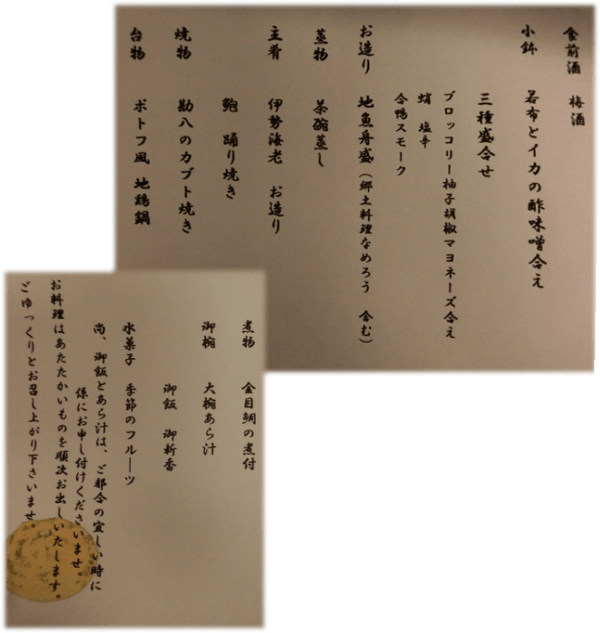 食前酒 梅酒
小鉢 若布とイカの酢味噌合え
三種盛合せ
ブロッコリー柚子胡椒マヨネーズ合え
蛸 塩辛
合鴨スモーク
お造り 地魚舟盛(郷土料理なめろう 含む)
蒸物 茶碗蒸し
主肴 伊勢海老 お造り
鮑 踊り焼き
焼物 勘八のカブト焼き
台物 ポトフ風 地鶏鍋
煮物 金目鯛の煮付
御椀 大椀あら汁
御飯 御新香
水菓子 季節のフルーツ
尚、御飯とあら汁は、ご都合の宜しい時に
係にお申し付けくださいませ。
お料理はあたたかいものを順次お出しいたします。
ごゆっくりとお召し上がり下さいませ。